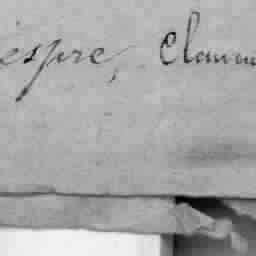 espre, Claun